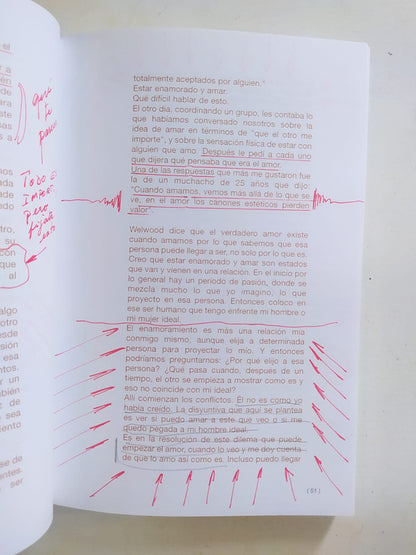 el
r a
én
de
ara
ste
sas
s a
qué
te
parece
TODO ES
IMPORT.
pero
fíjate
esto
nos
ado
edo
tro,
su
con
que
al
algo
otro
desde
sión
esa
ntos.
r un
bién
sea
ento
se de
ntes.
ser
totalmente aceptados por alguien."
Estar enamorado y amar.
Qué difícil hablar de esto.
El otro día, coordinando un grupo, les contaba lo
que habíamos conversado nosotros sobre la
idea de amar en términos de "que el otro me
importe", y sobre la sensación física de estar con
alguien que amo. Después le pedí a cada uno
que dijera qué pensaba que era el amor.
Una de las respuestas que más me gustaron fue
la de un muchacho de 25 años que dijo:
"Cuando amamos, vemos más allá de lo que se
ve, en el amor los cánones estéticos pierden
valor".
Welwood dice que el verdadero amor existe
cuando amamos por lo que sabemos que esa
persona puede llegar a ser, no solo por lo que es.
Creo que estar enamorado y amar son estados
que van y vienen en una relación. En el inicio por
lo general hay un período de pasión, donde se
mezcla mucho lo que yo imagino, lo que
proyecto en esa persona. Entonces coloco en
ese ser humano que tengo enfrente mi hombre o
mi mujer ideal.
El enamoramiento es más una relación mía
conmigo mismo, aunque elija a determinada
persona para proyectar lo mío. Y entonces
podríamos preguntarnos: ¿Por qué elijo a esa
persona? ¿Qué pasa cuando, después de un
tiempo, el otro se empieza a mostrar como es y
eso no coincide con mi ideal?
Allí comienzan los conflictos. Él no es como yo
había creído. La disyuntiva que aquí se plantea
es ver si puedo amar a este que veo o si me
quedo pegada a mi hombre ideal.
Es en la resolución de este dilema que puede
empezar el amor, cuando lo veo y me doy cuenta
de que lo amo así como es. Incluso puedo llegar
( 51 )